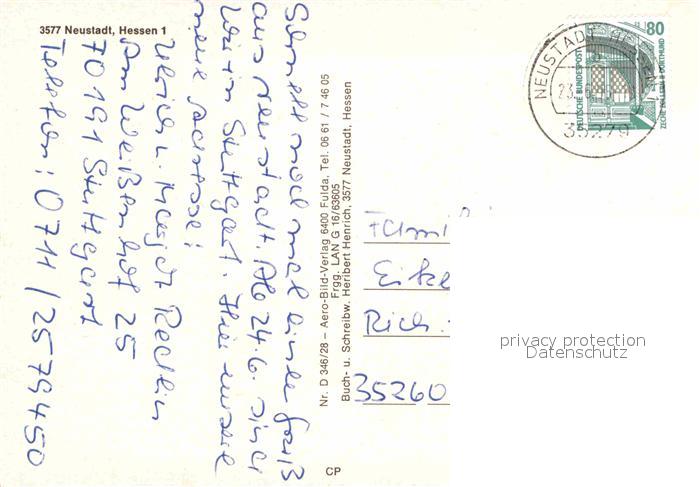 3577 Neustadt, Hessen 1
Schnell noch mal einen Gruß
aus Neustadt. Ab 24.6. sind
wir in Stuttgart. Hier unsere
neue Adresse:
Ulrich u. Recklin
Am Weißenhof 25
70191 Stuttgart
Telefon: 0711/2579450
Nr. D 346/28 – Aero-Bild-Verlag 6400 Fulda, Tel. 06 61 / 7 46 05
Frgg. LAN G 16/63605
Buch- u. Schreibw. Heribert Henrich, 3577 Neustadt, Hessen
CP
80
DEUTSCHE BUNDESPOST
ZECHE ZOLLERN II DORTMUND
NEUSTADT, HESSEN 1
35279
Fami
Eike
Rich
35260
privacy protection
Datenschutz